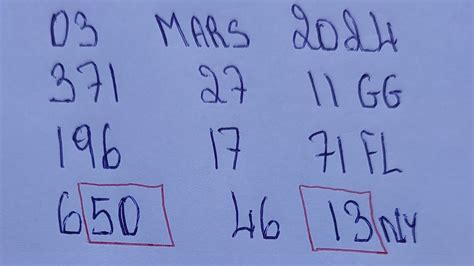 03 MARS 2024
371 27 11 GG
196 17 71 FL
650 46 13 NY